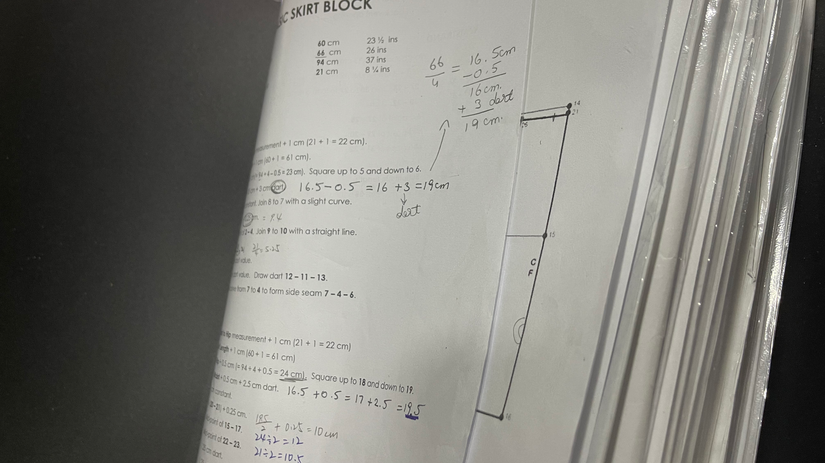 SC SKIRT BLOCK
60 cm 23 ½ ins
66 cm 26 ins
94 cm 37 ins
21 cm 8 ¼ ins
66/4 = 16.5cm
-0.5
16cm.
+ 3 dart
19 cm.
measurement + 1 cm (21 + 1 = 22 cm).
(60 + 1 = 61 cm).
÷ 4 - 0.5 = 23 cm). Square up to 5 and down to 6.
+ 3 cm dart) 16.5-0.5 = 16 +3 =19cm
dart
Join 8 to 7 with a slight curve.
= 9.4
2-4. Join 9 to 10 with a straight line.
= 5.25
value. Draw dart 12 - 11 - 13.
from 7 to 4 to form side seam 7 - 4 - 6.
measurement + 1 cm (21 + 1 = 22 cm)
+ 1 cm (60 + 1 = 61 cm)
+ 0.5 cm (= 94 ÷ 4 + 0.5 = 24 cm). Square up to 18 and down to 19.
+ 0.5 cm + 2.5 cm dart. 16.5 +0.5 = 17 +2.5 =19.5
constant.
+ 0.25 cm. 19.5/2 + 0.25 = 10 cm
of 15 - 17 24÷2 = 12
of 22 - 23. 21÷2 = 10.5
dart.
14
21
26
15
C
F